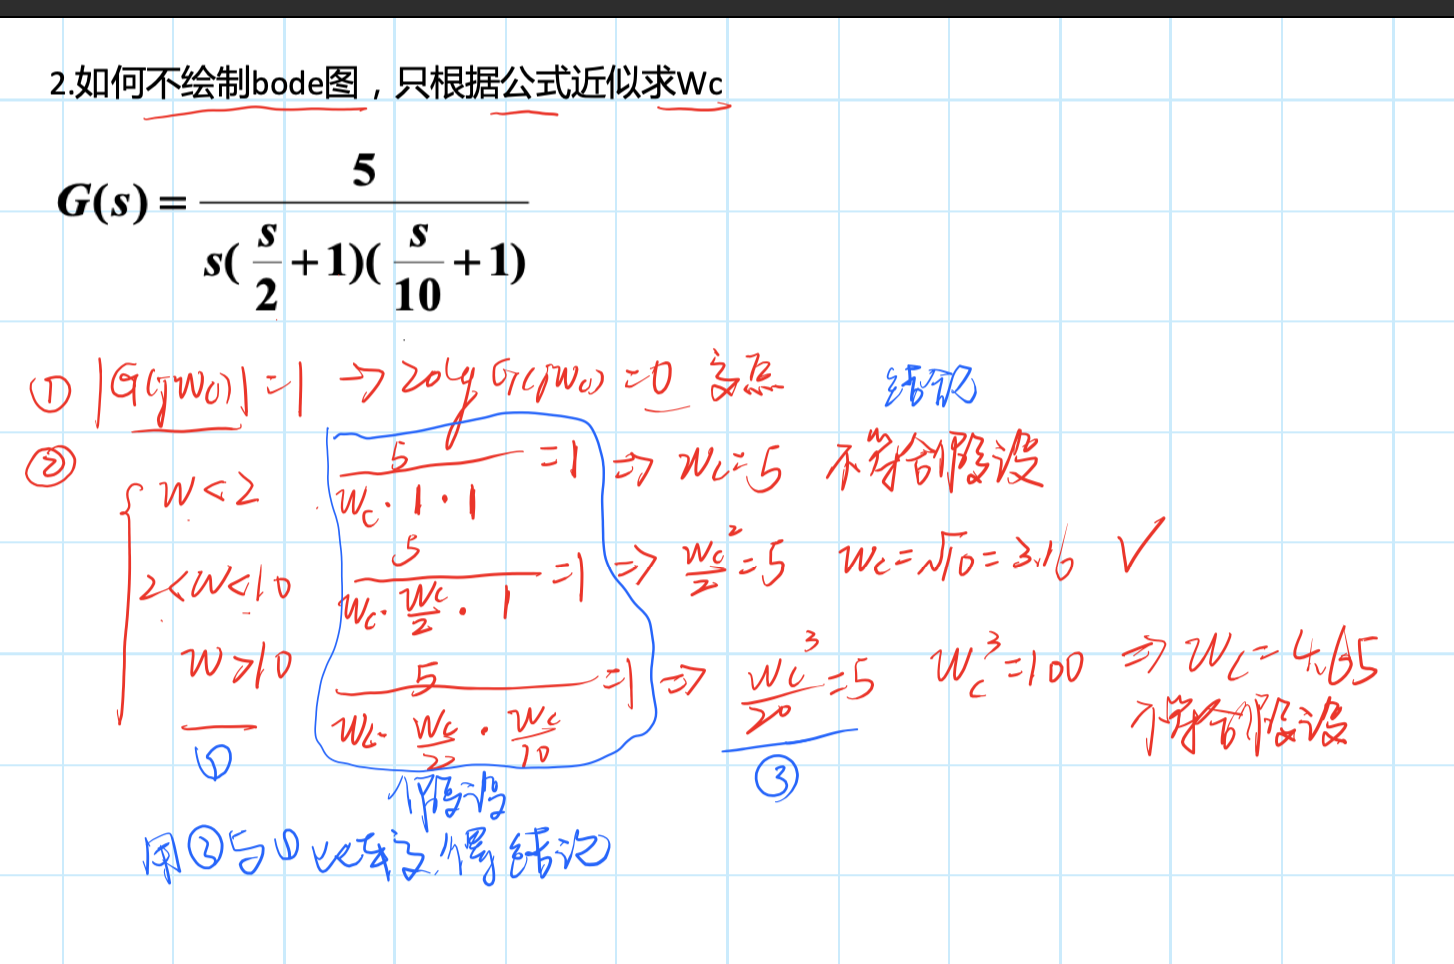 2.如何不绘制bode图，只根据公式近似求Wc
G(s) = 5 / ( s( s/2 + 1)( s/10 + 1) )
① |G(jWc)| = 1 → 20lg G(jWc) = 0 交点
结论
② { W < 2    5 / (Wc · 1 · 1) = 1 ⇒ Wc = 5 不符合假设
2 < W < 10    5 / (Wc · Wc/2 · 1) = 1 ⇒ Wc²/2 = 5    Wc = √10 = 3.16 ✓
W > 10    5 / (Wc · Wc/2 · Wc/10) = 1 ⇒ Wc³/20 = 5    Wc³ = 100 ⇒ Wc = 4.65
不符合假设
①    ③
假设
用③与①比较,得结论